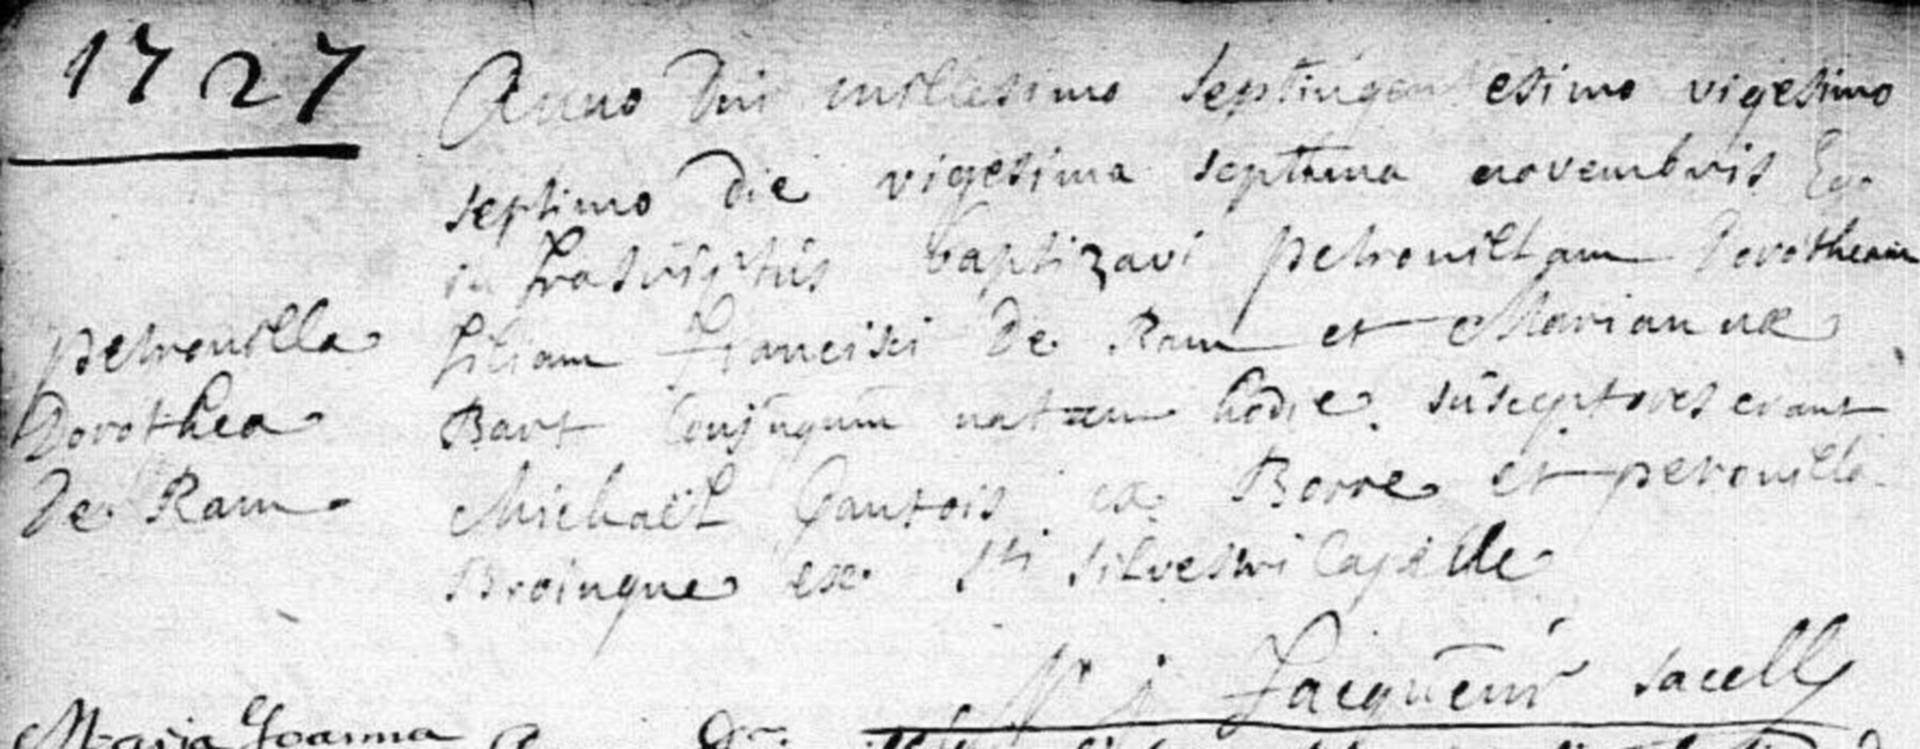 1727
Anno Dni millesimo septingentesimo vigesimo
septimo die vigesima septima novembris Ego
infrascriptus baptizavi petronillam Dorotheam
filiam Francisci De Ram et Mariannæ
Bart Conjugum natam hodie. susceptores erant
Michaël Gantois ex Borre et petronilla
Broingne ex Sti silvestri Capelle
petronilla
Dorothea
De Ram
j Facqueur sacell
Maria Joanna